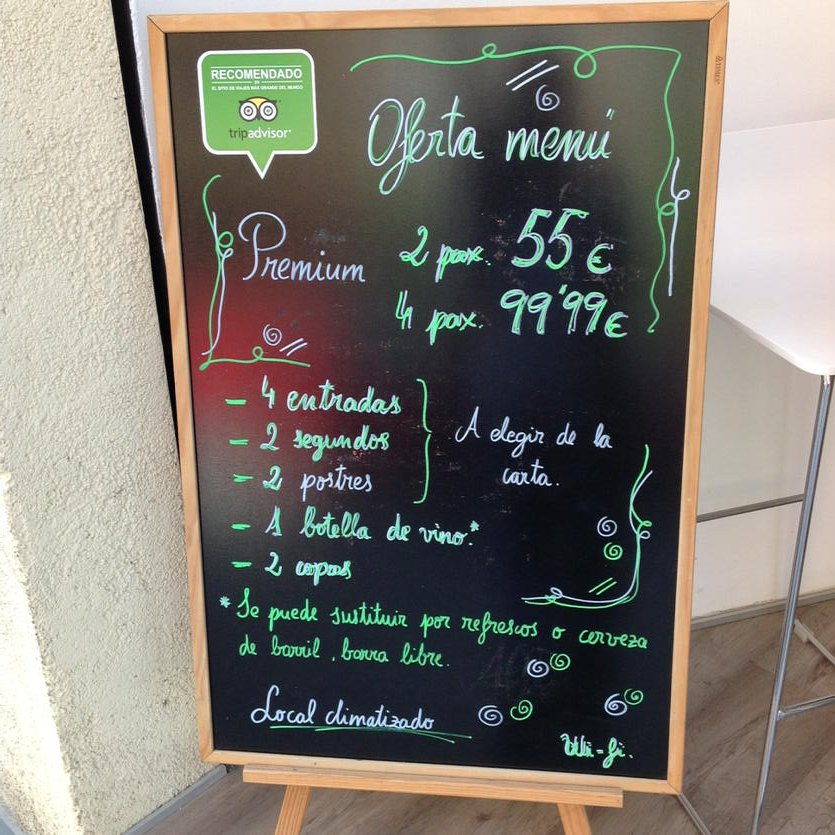 RECOMENDADO
EN
EL SITIO DE VIAJES MÁS GRANDE DEL MUNDO
tripadvisor®
Oferta menú
Premium
2 pax. 55 €
4 pax. 99'99 €
- 4 entradas
- 2 segundos
- 2 postres
A elegir de la
carta.
- 1 botella de vino.*
- 2 copas
* Se puede sustituir por refrescos o cerveza
de barril, barra libre.
Local climatizado
Wi-fi.